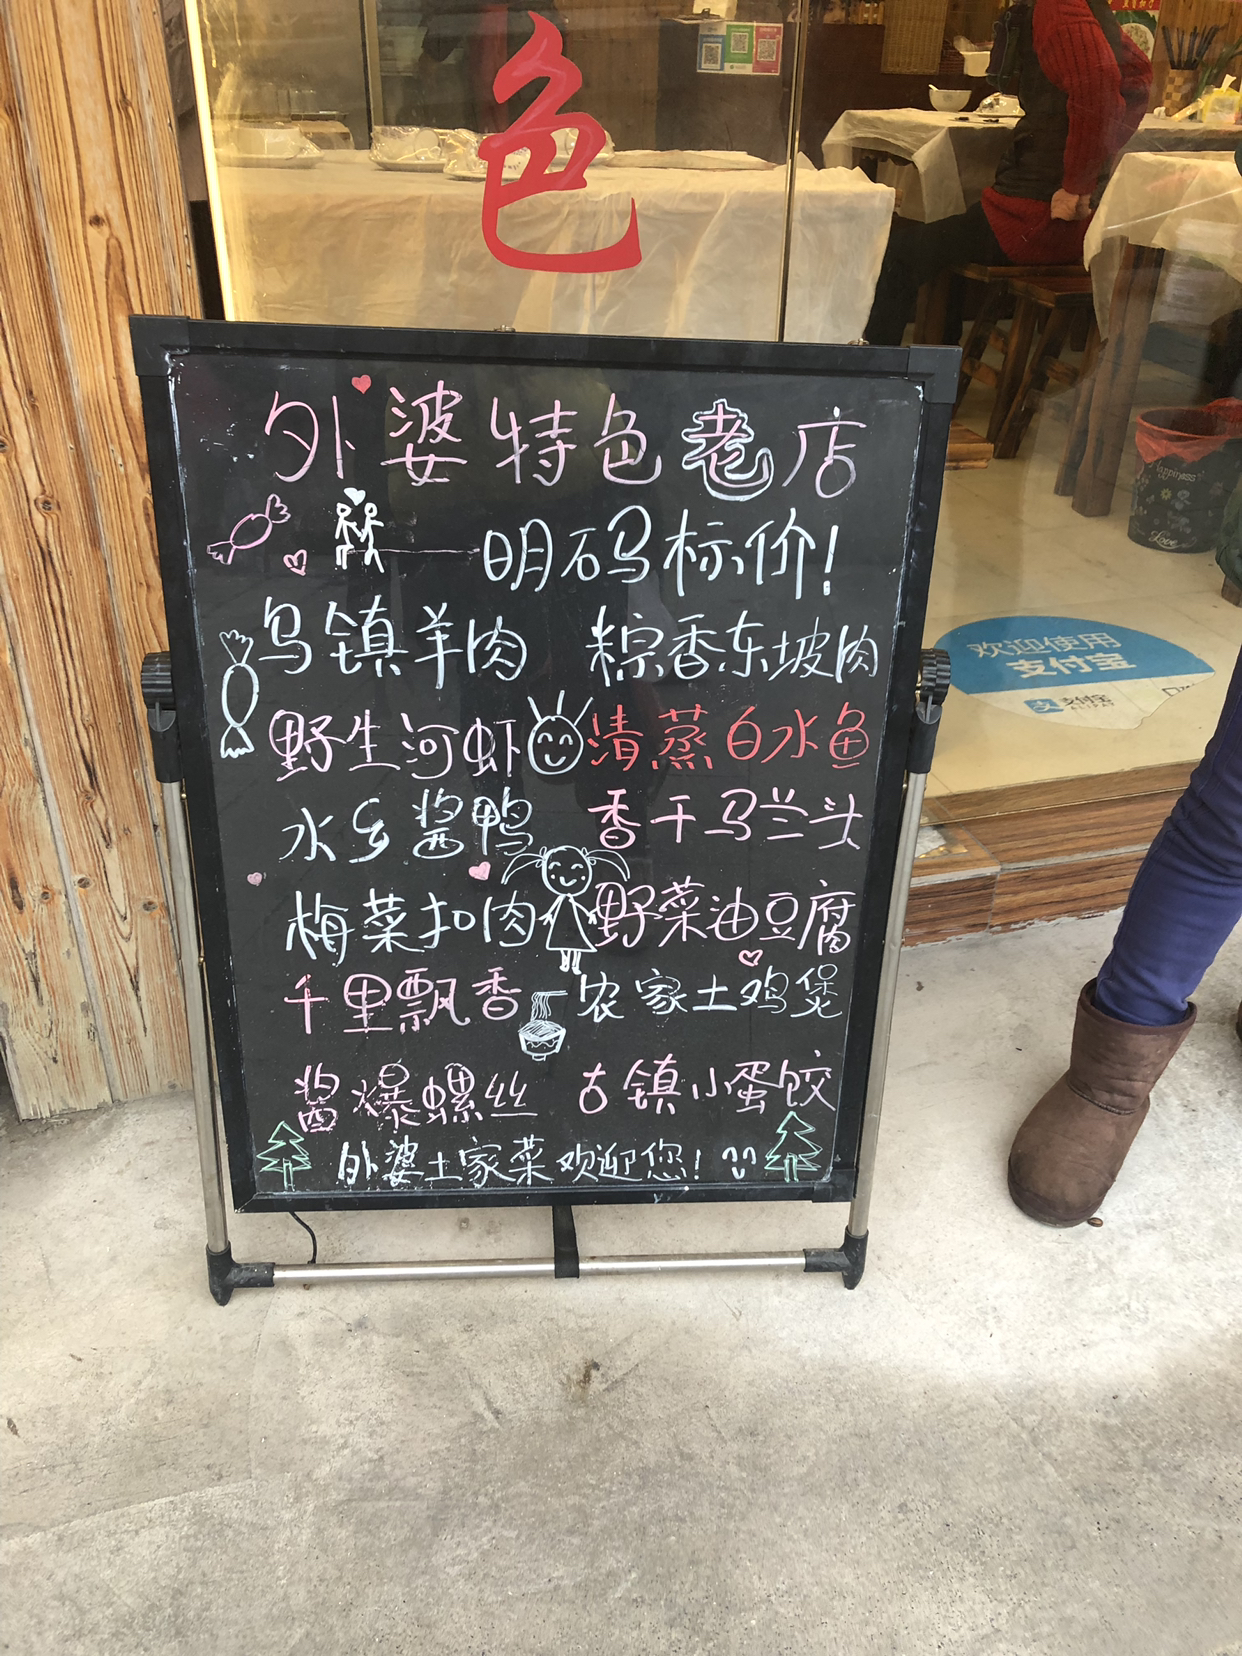 色
外婆特色老店
明码标价!
乌镇羊肉 粽香东坡肉
野生河虾 清蒸白水鱼
水乡酱鸭 香干马兰头
梅菜扣肉 野菜油豆腐
千里飘香 农家土鸡煲
酱爆螺丝 古镇小蛋饺
外婆土家菜欢迎您!
欢迎使用
支付宝
支付宝
Happiness
Love